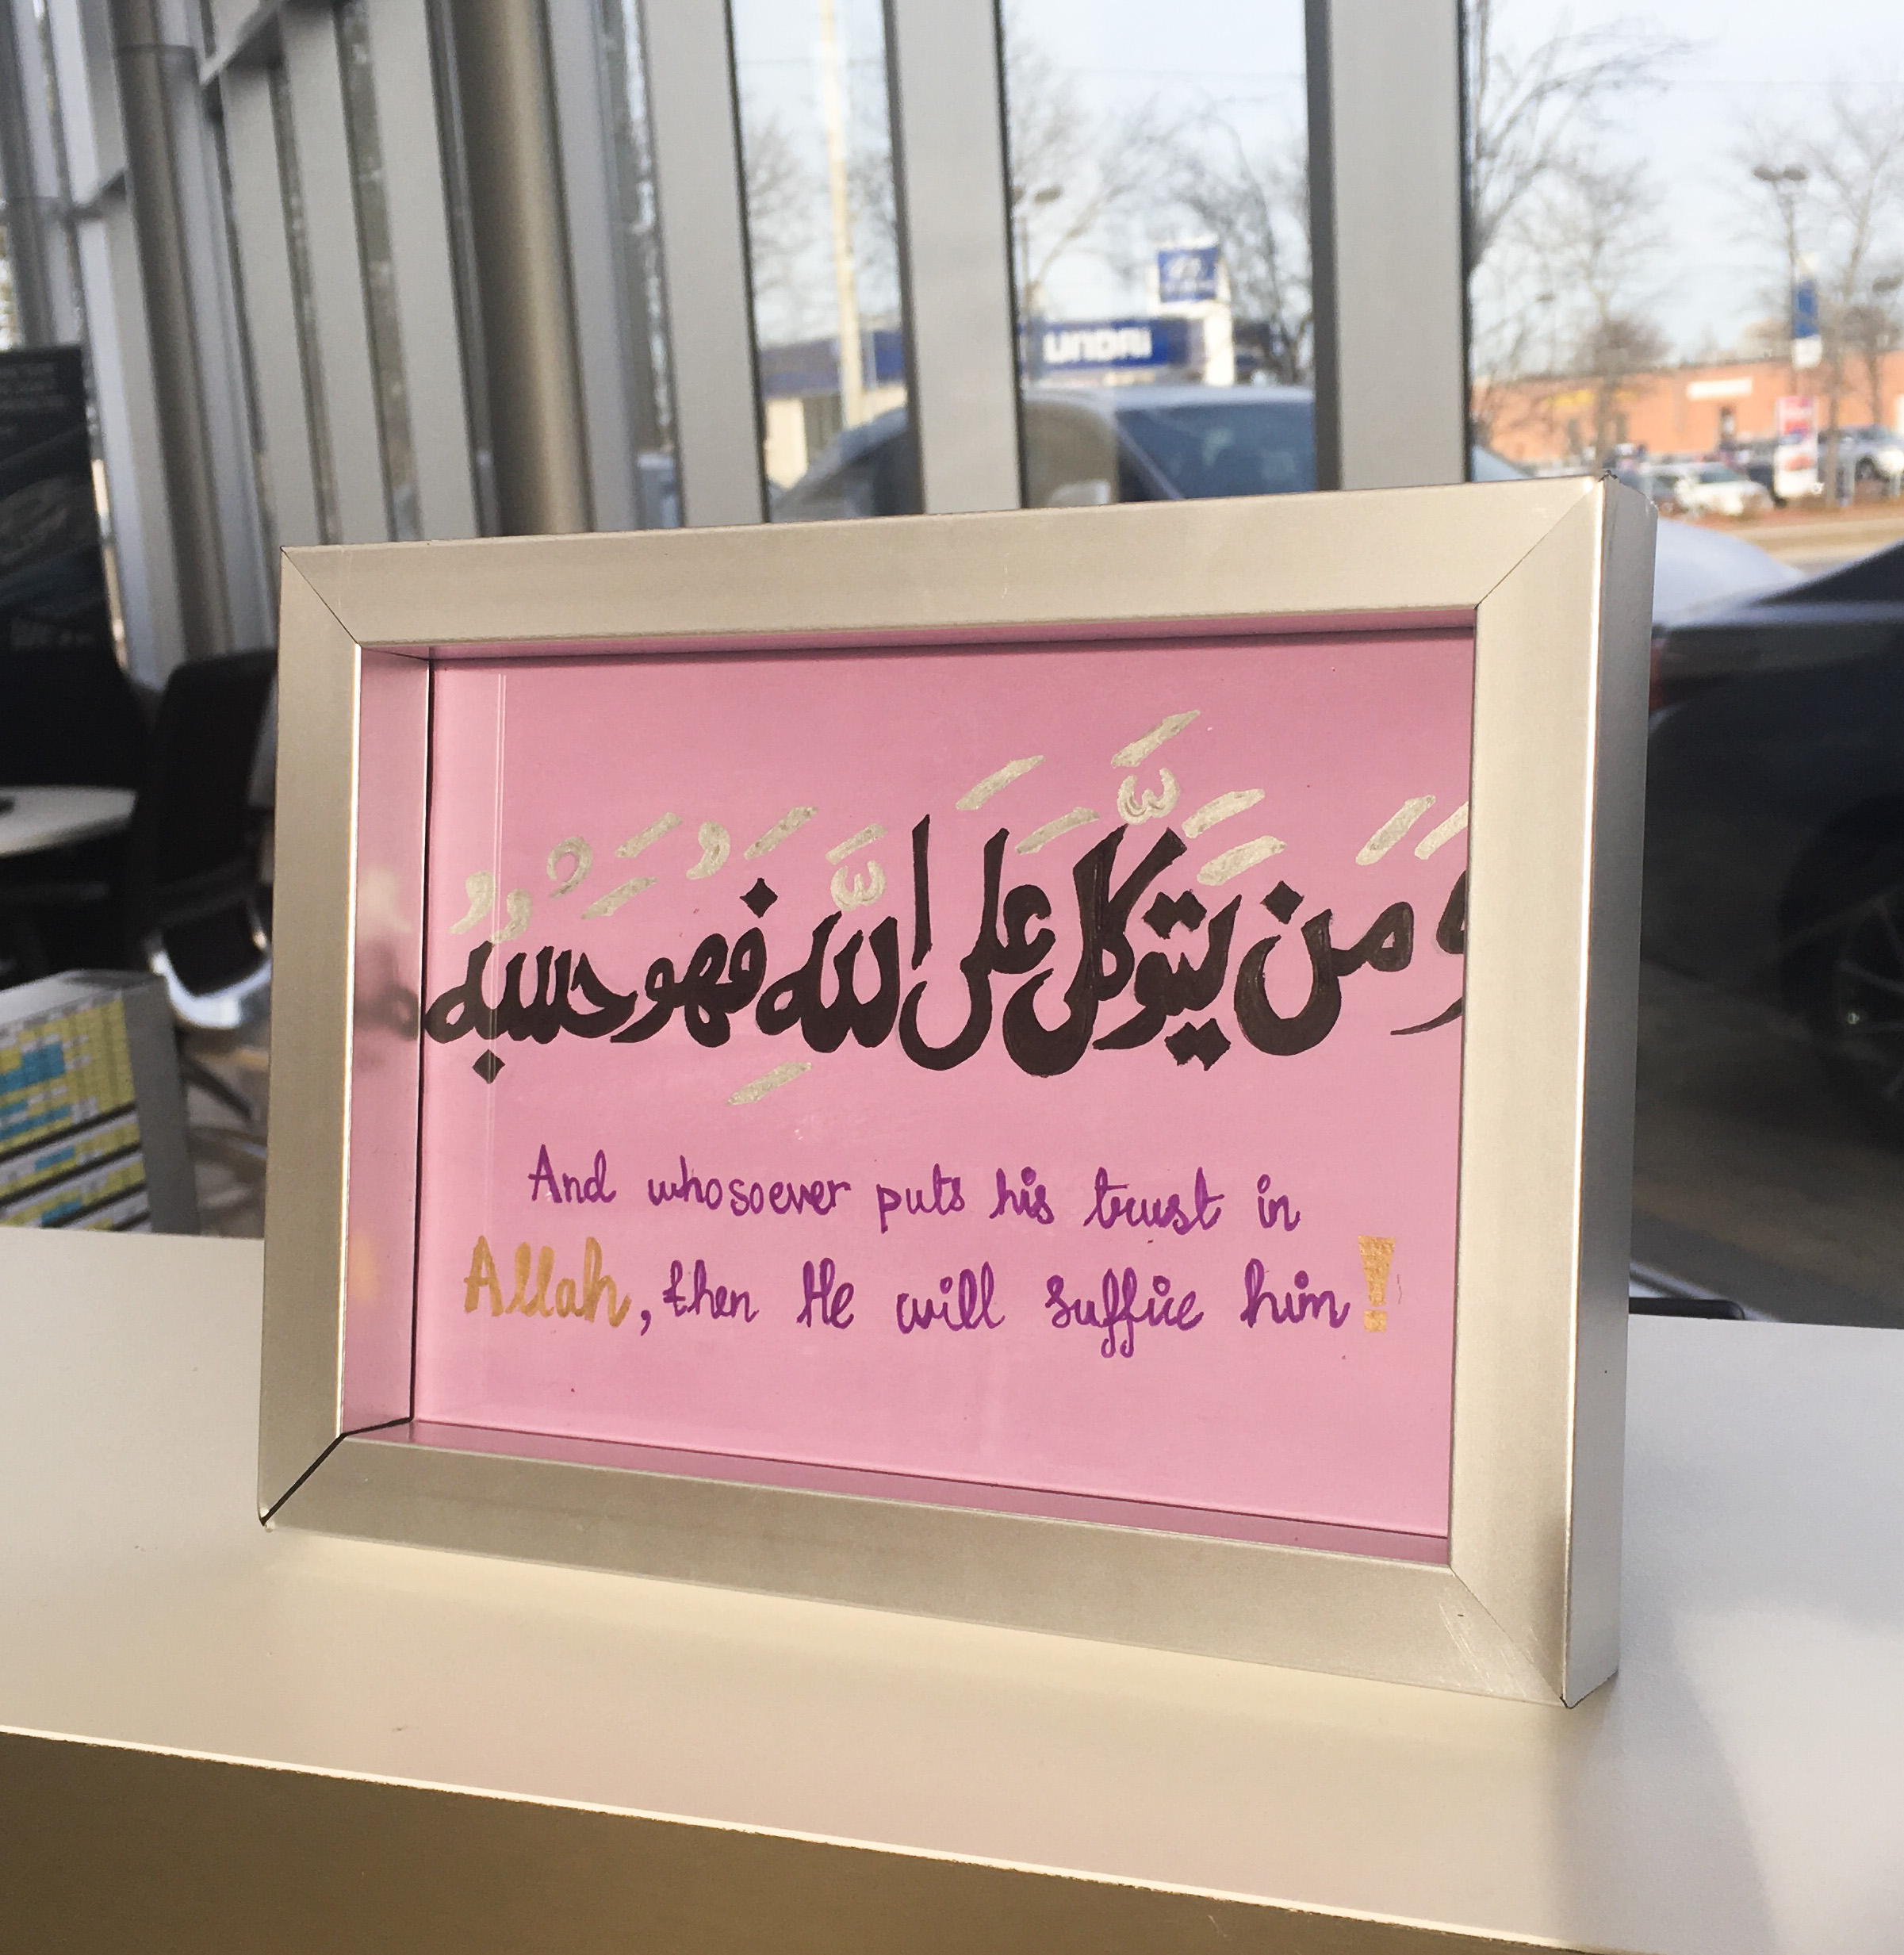 وَمَن يَتَوَكَّلْ عَلَى اللَّهِ فَهُوَ حَسْبُهُ
And whosoever puts his trust in
Allah, then He will suffice him!
UNDAI